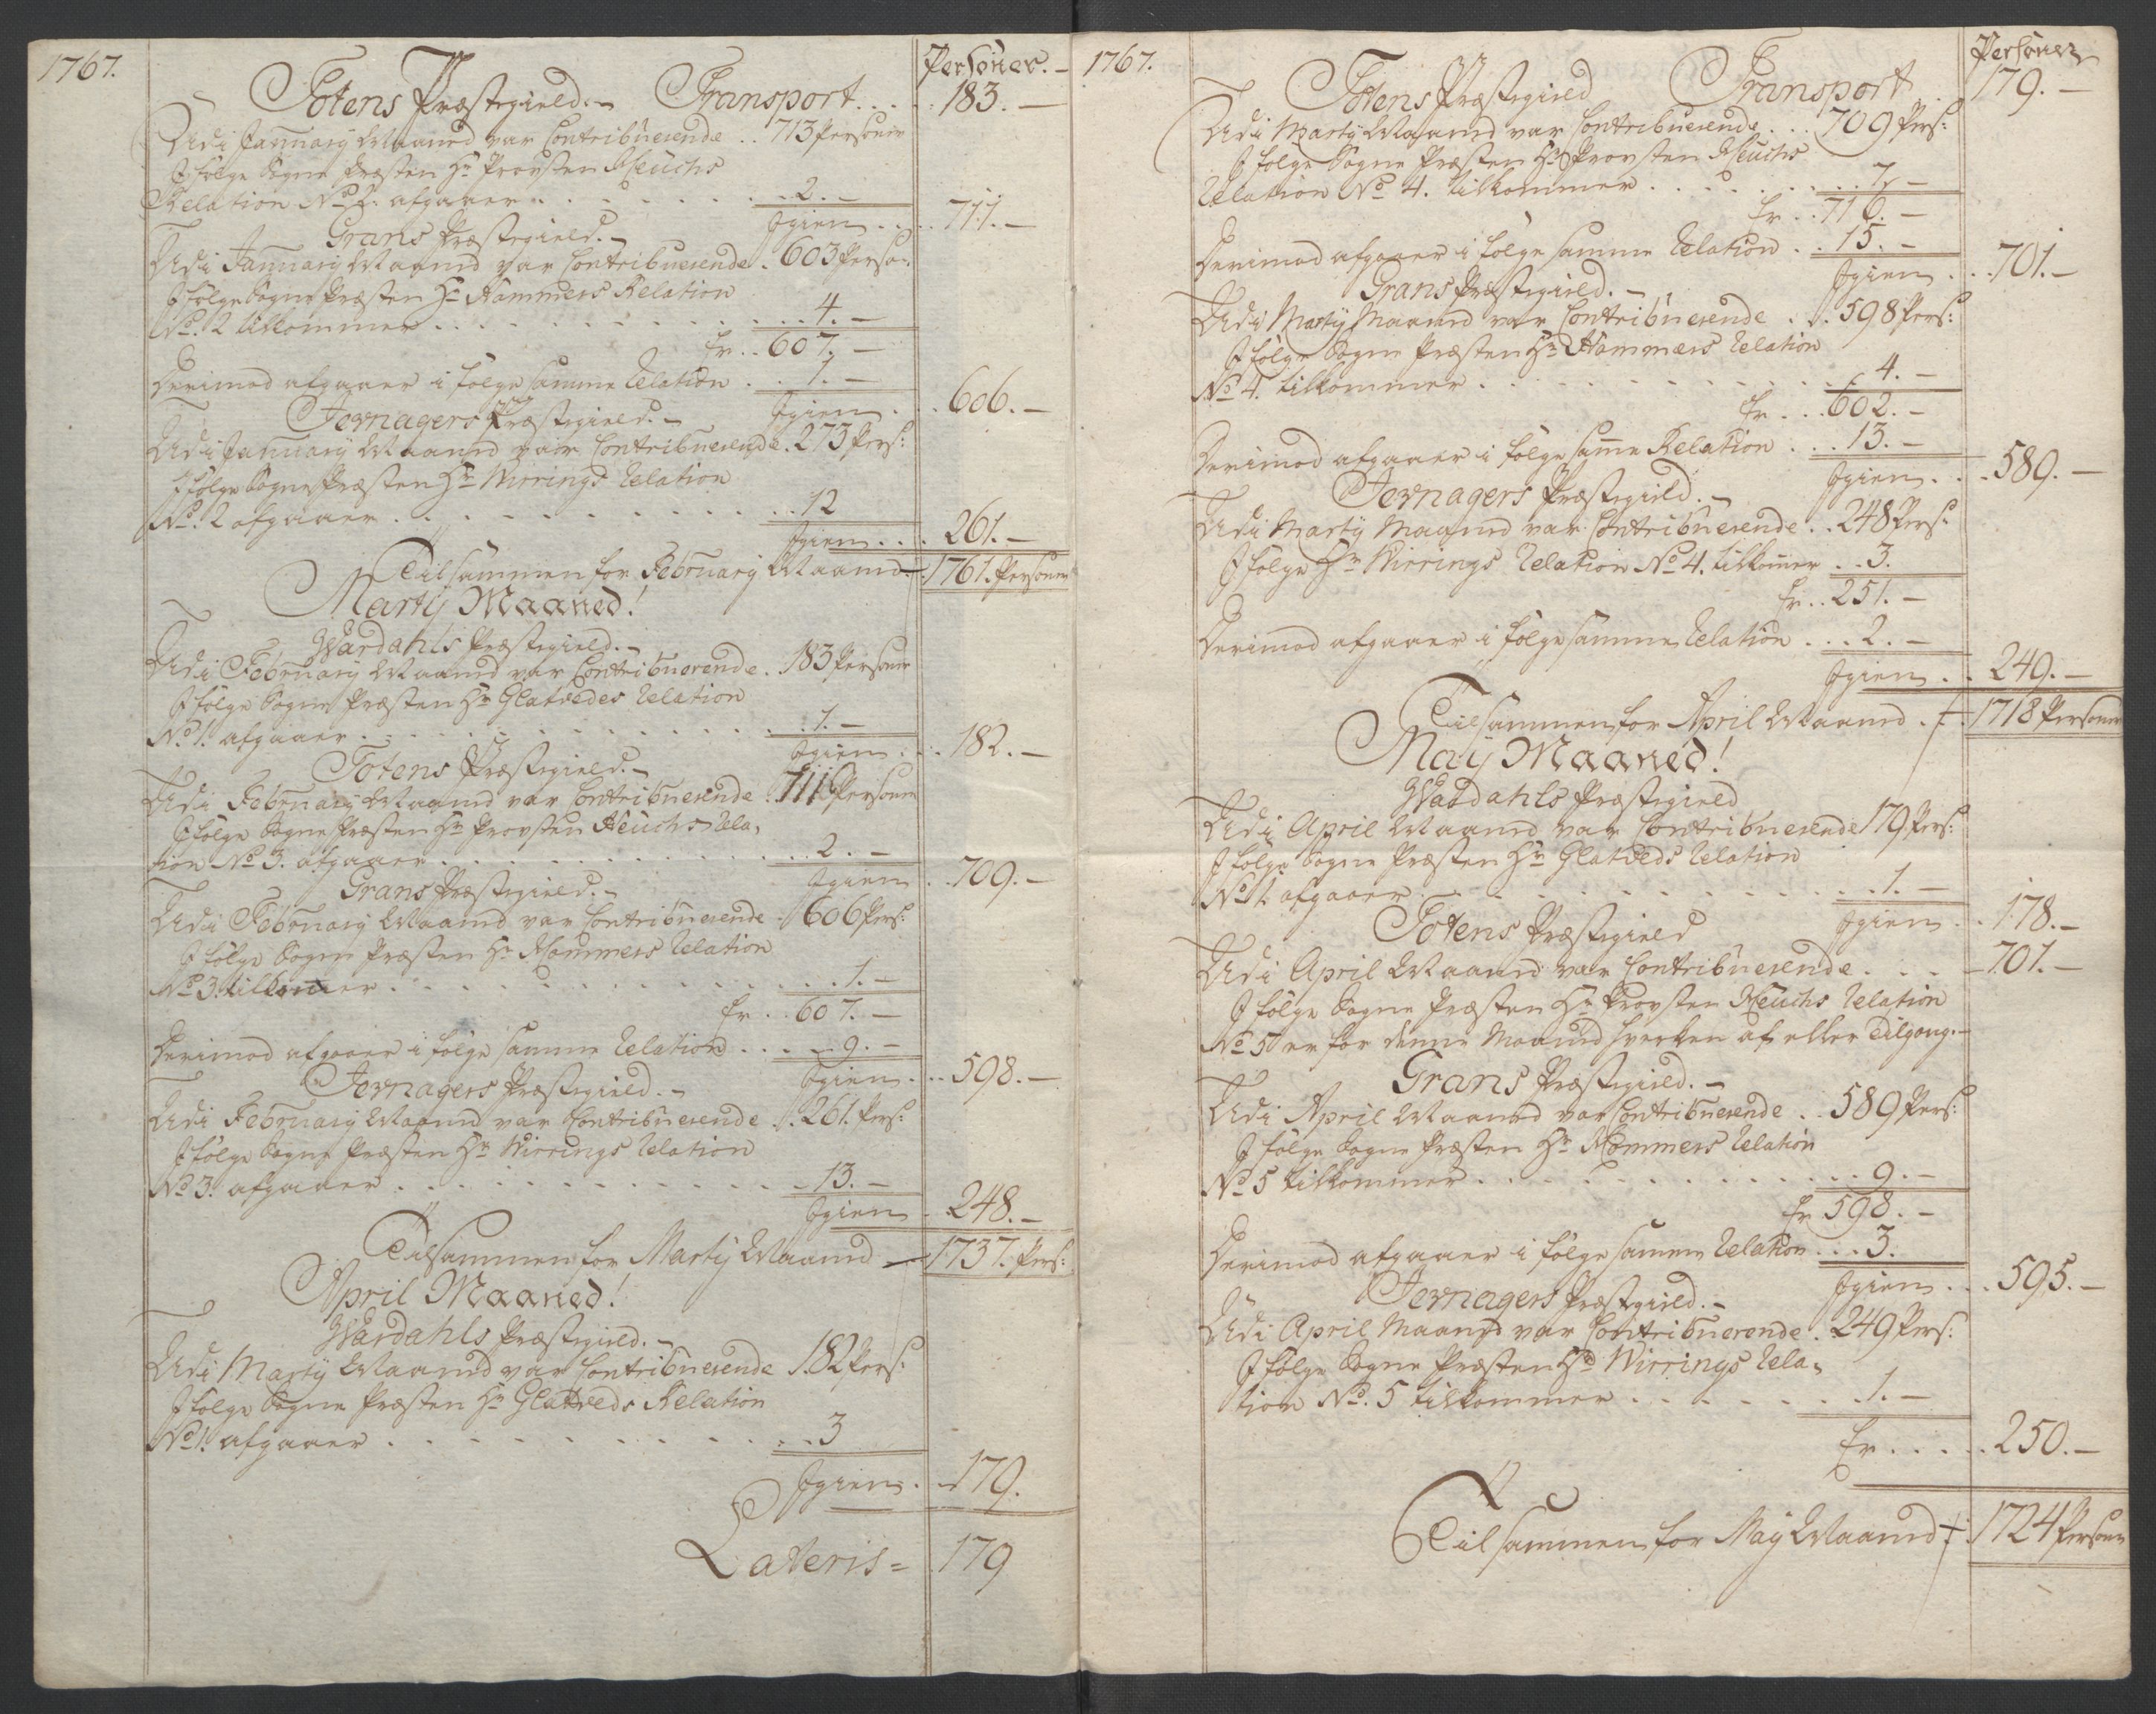 1767.
Personer.
Totens Præstegield. Transport . . . 183.
Udi January Maaned var Contribuerende . . 713 Personer
I følge Sogne Præsten Hr Provsten Heuchs
Relation No 2. afgaaer . . . 2.
Igien . . . 711.
Grans Præstegield.
Udi January Maaned var Contribuerende . 603 Perso:
I følge Sogne Præsten Hr Hammers Relation
No. 2 tilkommer . . . 4.
Er . . 607.
Derimod afgaaer i følge samme Relation . . 1.
Igien . . . 606.
Jevnagers Præstegield.
Udi January Maaned var Contribuerende . 273 Pers:
I følge Sogne Præsten Hr Wirrings Relation
No. 2 afgaaer . . . 12
Igien . . . 261.
Tilsammen for February Maaned . 1761. Personer
Martij Maaned!
Wardahls Præstegield.
Udi February Maaned var Contribuerende . 183 Personer
I følge Sogne Præsten Hr Glatvedes Relation
No 1. afgaaer . . . 1.
Igien . . . 182.
Totens Præstegield.
Udi February Maaned var Contribuerende . 711 Personer
I følge Sogne Præsten Hr Provsten Heuchs Rela,
tion No 3. afgaaer . . . 2.
Igien . . 709.
Grans Præstegield.
Udi February Maaned var Contribuerende . 606 Pers:
I følge Sogne Præsten Hr Hammers Relation
No 3. tilkommer . . . 1.
Er . . 607.
Derimod afgaaer i følge samme Relation . . . 9.
Igien . . . 598.
Jevnagers Præstegield.
Udi February Maaned var Contribuerende . . 261. Pers:
I følge Sogne Præsten Hr Wirrings Relation
No 3. afgaaer . . . 13.
Igien . 248.
Tilsammen for Martij Maaned 1737. Pers:
April Maaned!
Wardahls Præstegield.
Udi Martij Maaned var Contribuerende 182 Pers:
I følge Sogne Præsten Hr Glatveds Relation
No 1. afgaaer . . . 3
Igien . 179.
Lateris = 179
1767.
Personer
Totens Præstegield Transport . 179.
Udi Martij Maaned var Contribuerende . . 709 Pers:
I følge Sogne Præsten Hr Provsten Heuchs
Relation No 4. tilkommer . . . 7
Er . . 716.
Derimod afgaaer i følge samme Relation . . 15.
Igien . . . 701.
Grans Præstegield.
Udi Martij Maaned var Contribuerende . . . 598 Pers:
I følge Sogne Præsten Hr Hammers Relation
No 4. tilkommer . . . 4.
Er . . . 602.
Derimod afgaaer i følge samme Relation . . . 13.
Igien . . . 589.
Jevnagers Præstegield.
Udi Martij Maaned var Contribuerende . . 248 Pers:
I følge Hr Wirrings Relation No 4. tilkommer . . 3.
Er . . 251.
Derimod afgaaer i følge samme Relation . . . 2.
Igien . . 249.
Tilsammen for April Maaned . 1718 Personer
Maij Maaned!
Wardahls Præstegield
Udi April Maaned var Contribuerende 179 Pers:
I følge Sogne Præsten Hr Glatveds Relation
No 1. afgaaer . . . 1.
Igien . . 178.
Totens Præstegield
Udi April Maaned var Contribuerende . . . 701.
I følge Sogne Præsten Hr Provsten Heuchs Relation
No 5 er for denne Maaned hverken af eller Tilgang.
Grans Præstegield.
Udi April Maaned var Contribuerende . . 589 Pers:
I følge Sogne Præsten Hr Hammers Relation
No 5 tilkommer . . . 9.
Er 598.
Derimod afgaaer i følge samme Relation . . . 3.
Igien . . . 595.
Jevnagers Præstegield.
Udi April Maaned var Contribuerende . 249 Pers:
I følge Sogne Præsten Hr Wirrings Rela,
tion No. 5 tilkommer . . . 1.
Er . . . . 250.
Tilsammen for Maij Maaned 1724 Personer